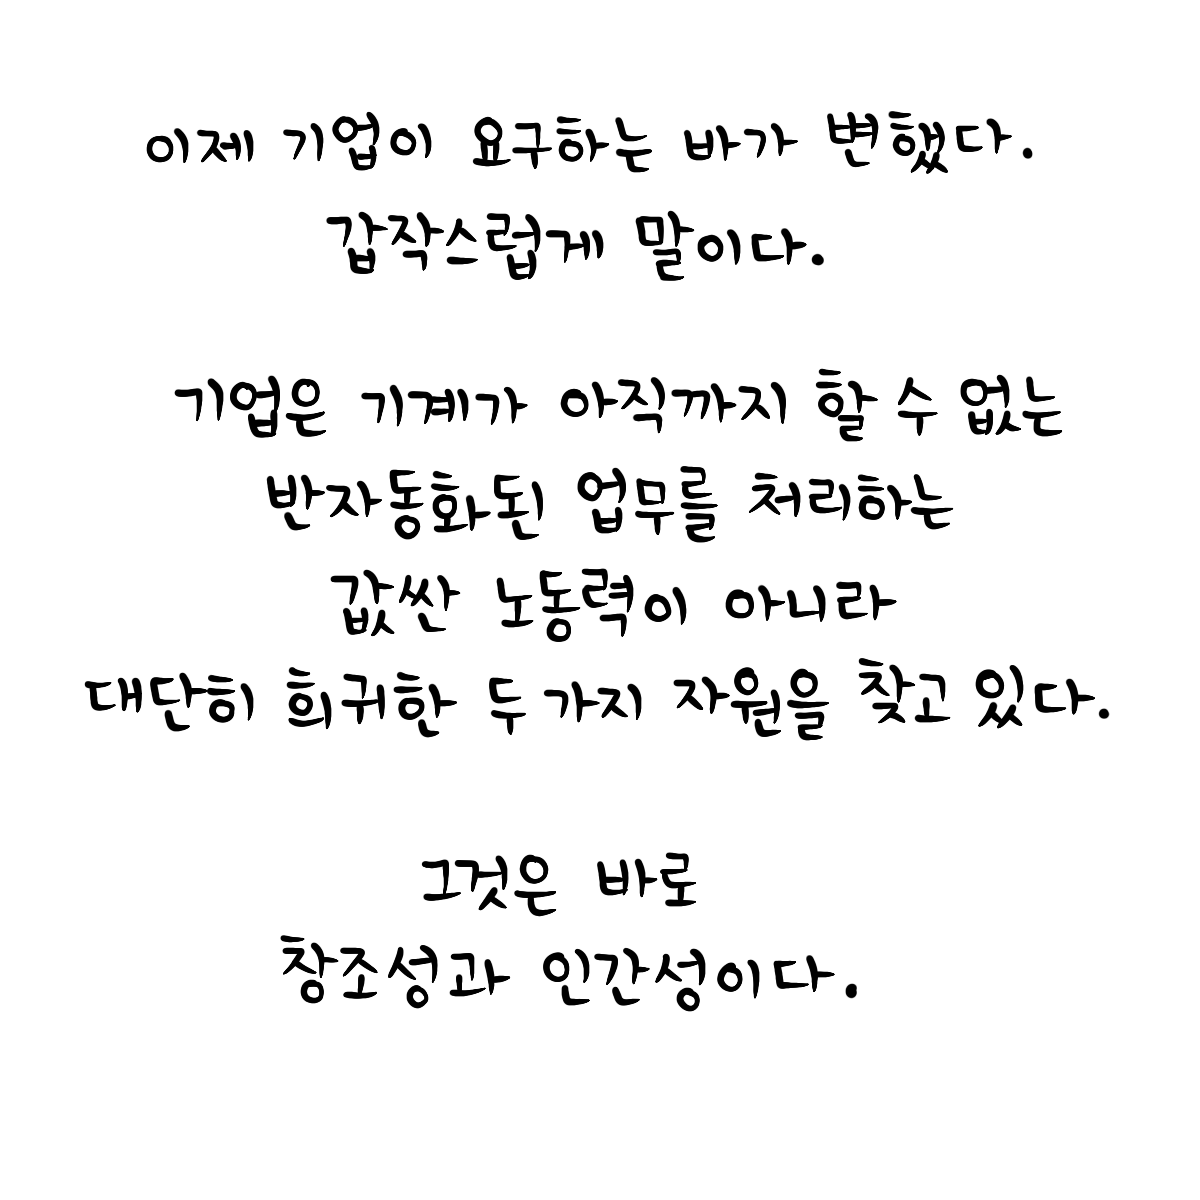 이제 기업이 요구하는 바가 변했다.
갑작스럽게 말이다.
기업은 기계가 아직까지 할 수 없는
반자동화된 업무를 처리하는
값싼 노동력이 아니라
대단히 희귀한 두 가지 자원을 찾고 있다.
그것은 바로
창조성과 인간성이다.